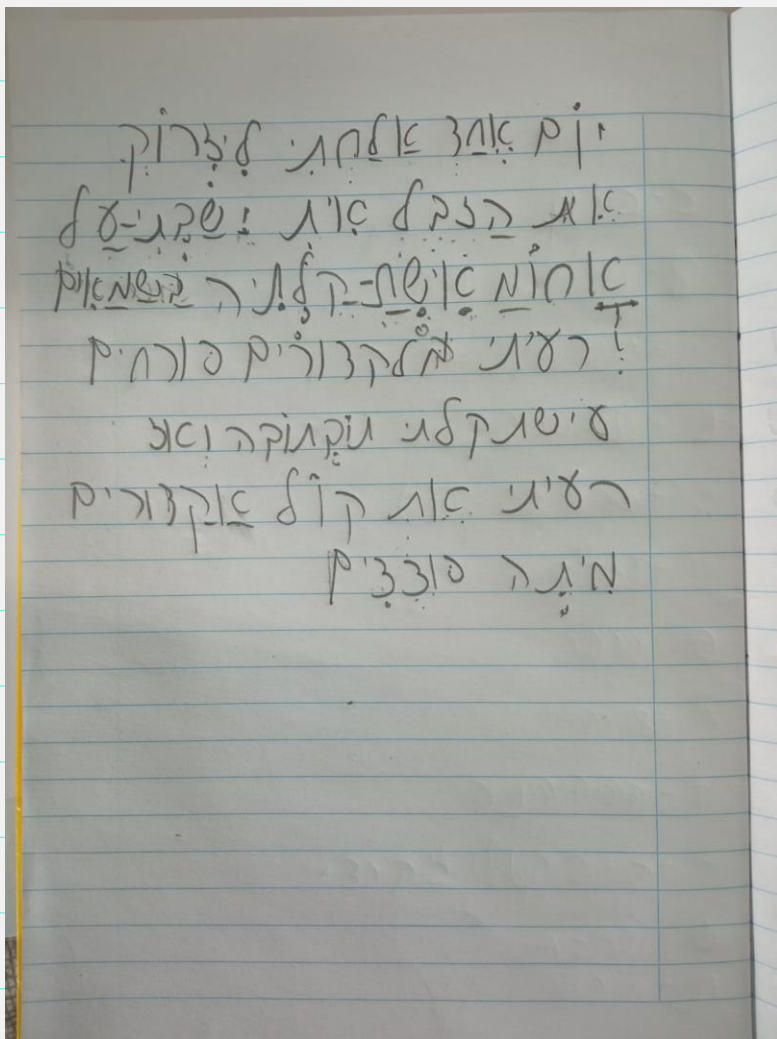 יוֹם אֶחַד אַלַחְתִי לִיזְרוֹק
אֵת הַזבֶל אִית יָשַׁבְתִי-עַל
אחוֹמַ אִישְׁת-קַלְתִיה בַּשמַאים
רעיתי מלקדורים פורחים
עישתקלתי תוֹקתוֹקה ואז
רעיתי אֵת קוֹל אַקדורים
מִיתָה פוצצים